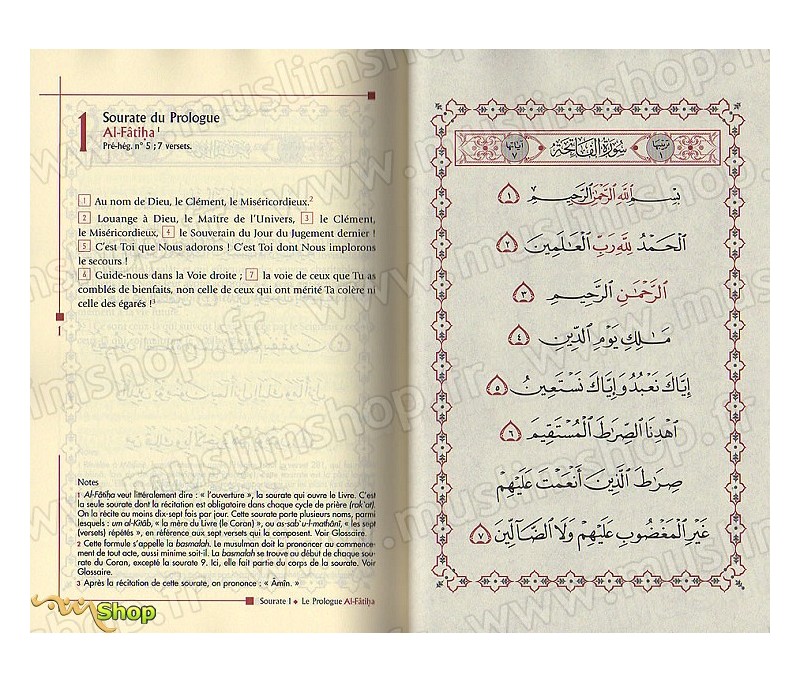 1
Sourate du Prologue
Al-Fâtiḥa ¹
Pré-hég. n° 5 ; 7 versets.
1 Au nom de Dieu, le Clément, le Miséricordieux.²
2 Louange à Dieu, le Maître de l'Univers, 3 le Clément,
le Miséricordieux, 4 le Souverain du Jour du Jugement dernier !
5 C'est Toi que Nous adorons ! C'est Toi dont Nous implorons
le secours !
6 Guide-nous dans la Voie droite ; 7 la voie de ceux que Tu as
comblés de bienfaits, non celle de ceux qui ont mérité Ta colère ni
celle des égarés !³
1
Notes
1 Al-Fâtiḥa veut littéralement dire : « l'ouverture », la sourate qui ouvre le Livre. C'est
la seule sourate dont la récitation est obligatoire dans chaque cycle de prière (rak'at).
On la récite au moins dix-sept fois par jour. Cette sourate porte plusieurs noms, parmi
lesquels : um al-Kitâb, « la mère du Livre (le Coran) », ou as-sab'u-l-mathânî, « les sept
(versets) répétés », en référence aux sept versets qui la composent. Voir Glossaire.
2 Cette formule s'appelle la basmalah. Le musulman doit la prononcer au commence-
ment de tout acte, aussi minime soit-il. La basmalah se trouve au début de chaque sou-
rate du Coran, excepté la sourate 9. Ici, elle fait partie du corps de la sourate. Voir
Glossaire.
3 Après la récitation de cette sourate, on prononce : « Âmîn. »
Sourate 1 ◆ Le Prologue Al-Fâtiḥa
ترتيبها ١ سُورَةُ الفَاتِحَةِ آياتها ٧
بِسْمِ ٱللَّهِ ٱلرَّحْمَٰنِ ٱلرَّحِيمِ ١
ٱلْحَمْدُ لِلَّهِ رَبِّ ٱلْعَٰلَمِينَ ٢
ٱلرَّحْمَٰنِ ٱلرَّحِيمِ ٣
مَٰلِكِ يَوْمِ ٱلدِّينِ ٤
إِيَّاكَ نَعْبُدُ وَإِيَّاكَ نَسْتَعِينُ ٥
ٱهْدِنَا ٱلصِّرَٰطَ ٱلْمُسْتَقِيمَ ٦
صِرَٰطَ ٱلَّذِينَ أَنْعَمْتَ عَلَيْهِمْ
غَيْرِ ٱلْمَغْضُوبِ عَلَيْهِمْ وَلَا ٱلضَّآلِّينَ ٧
www.muslimshop.fr
Shop